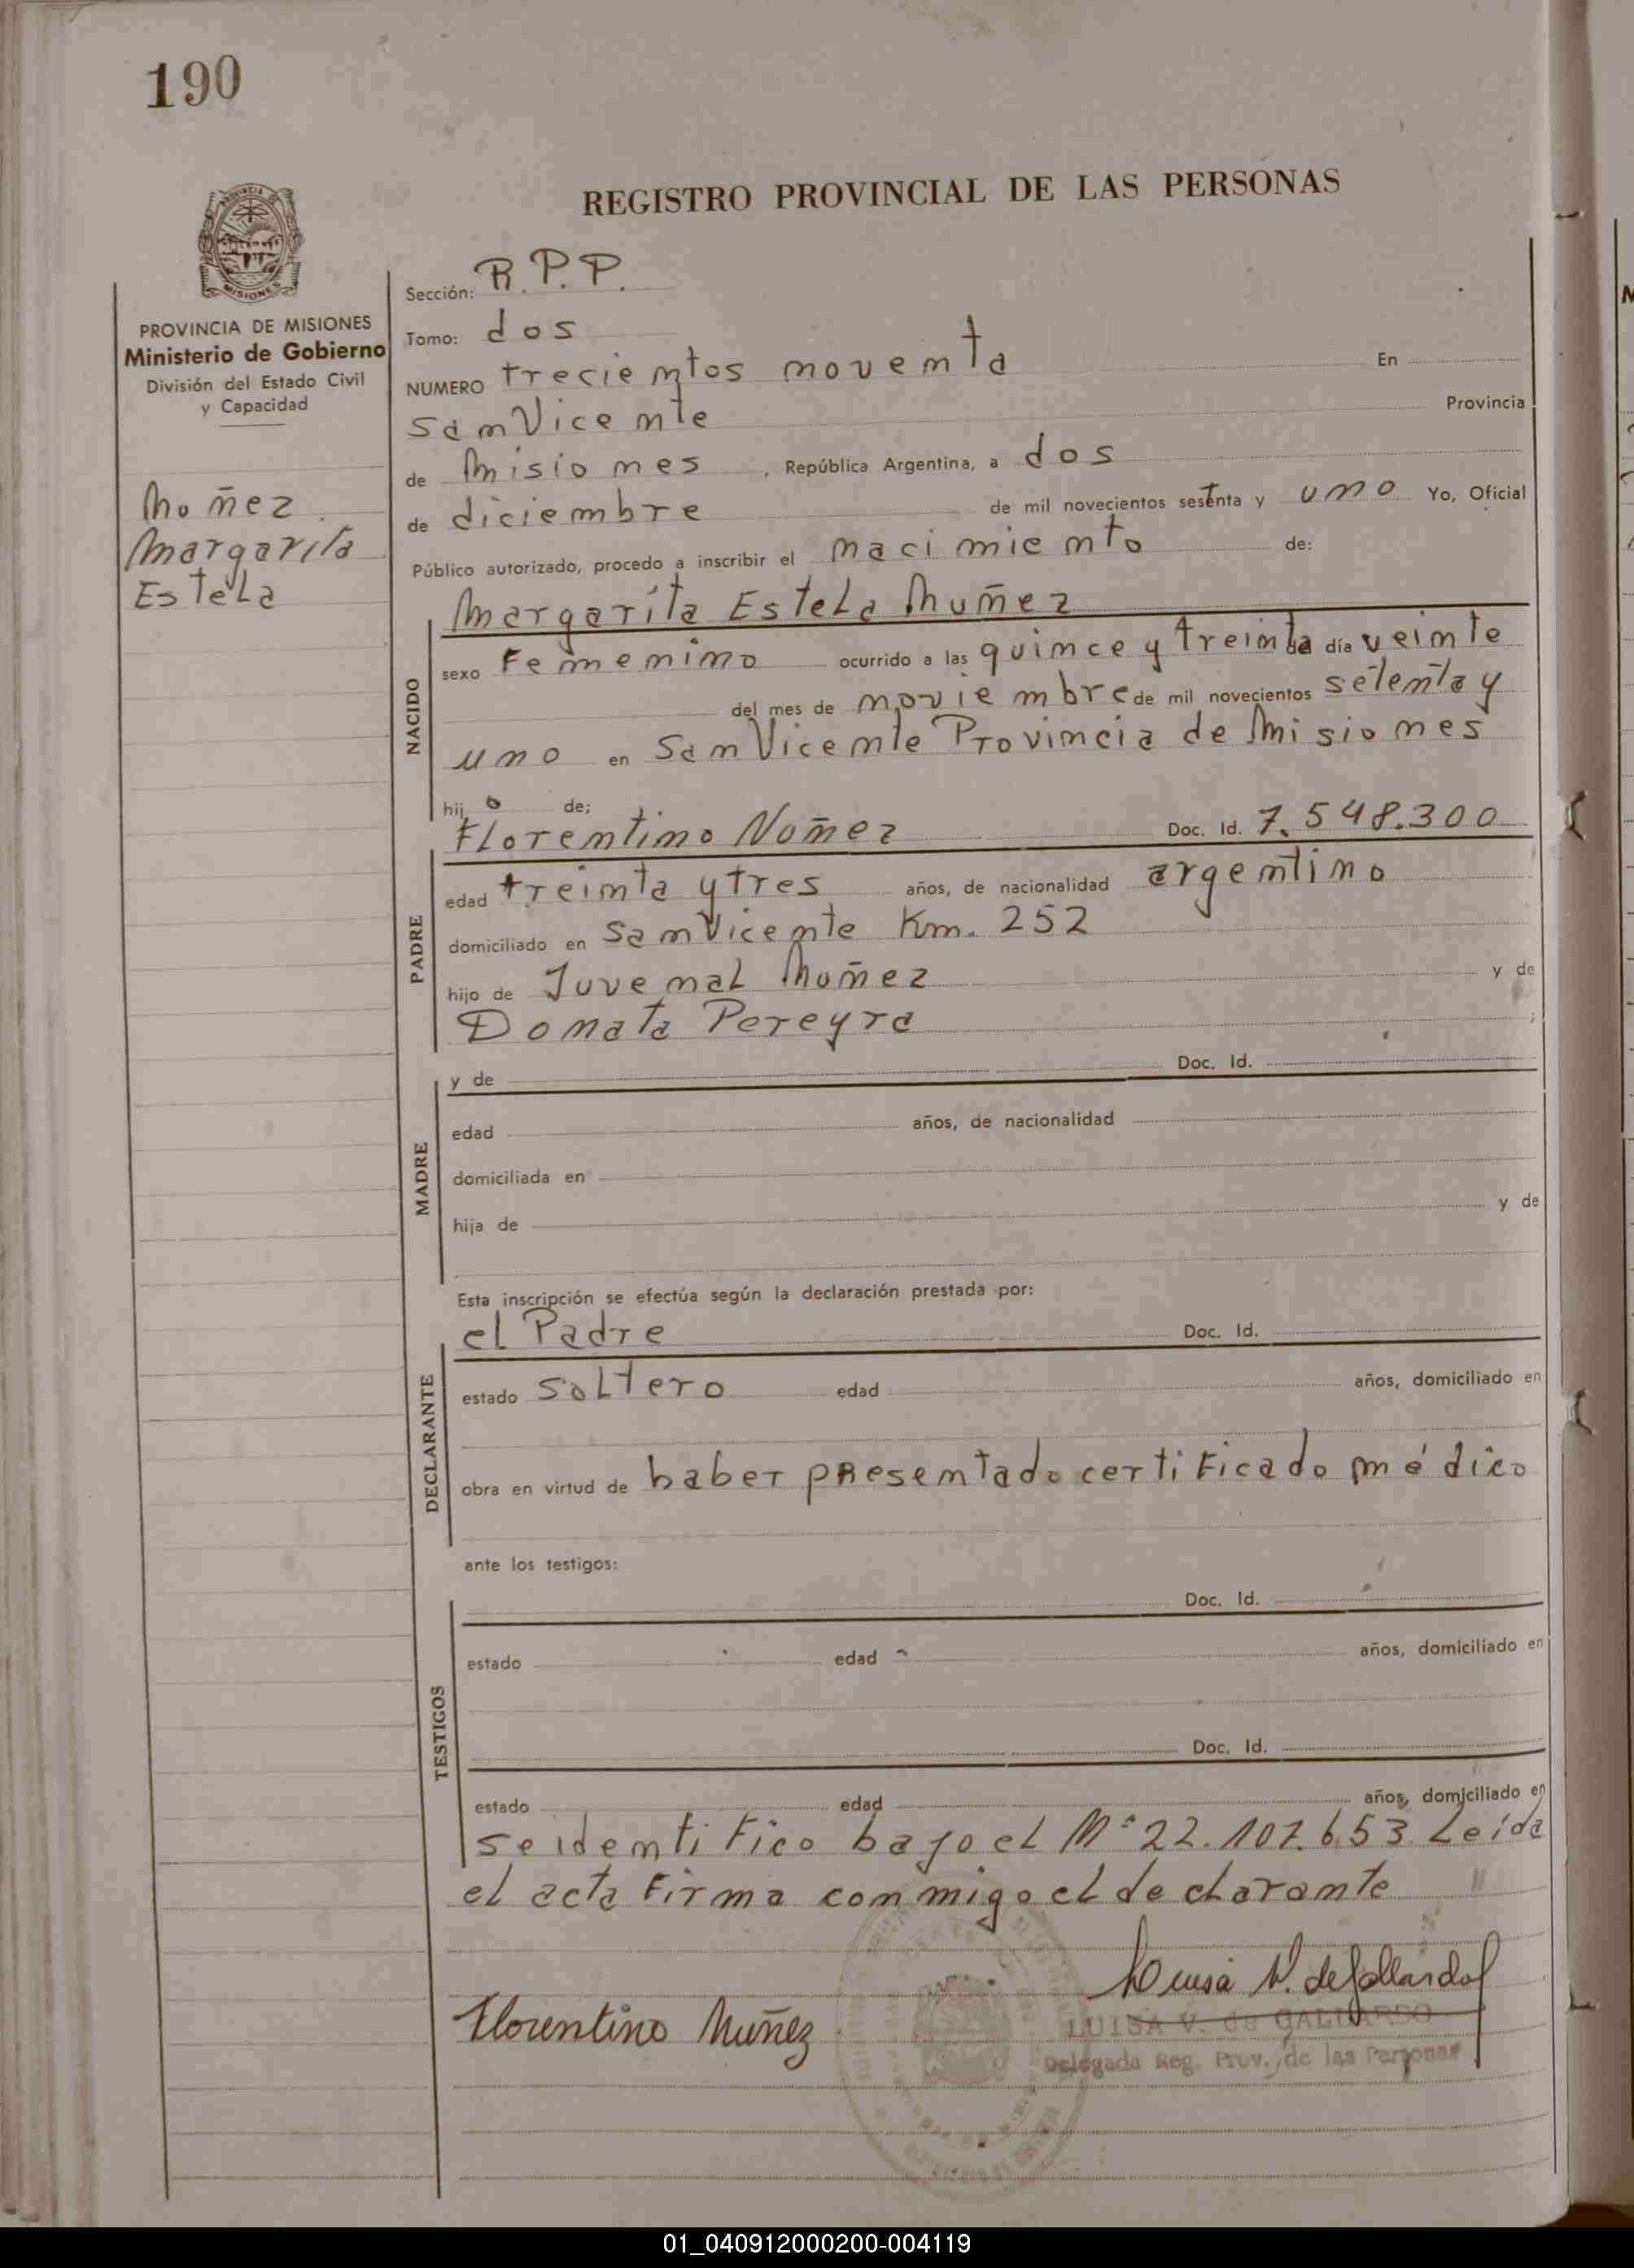 190
REGISTRO PROVINCIAL DE LAS PERSONAS
MISIONES
PROVINCIA DE MISIONES
Ministerio de Gobierno
División del Estado Civil
y Capacidad
Muñez
Margarita
Estela
Sección: R.P.P.
Tomo: dos
NUMERO trecientos noventa En
San Vicente Provincia
de Misiones, República Argentina, a dos
de diciembre de mil novecientos setenta y uno Yo, Oficial
Público autorizado, procedo a inscribir el nacimiento de:
NACIDO
Margarita Estela Muñez
sexo Femenino ocurrido a las quince y treinta día veinte
del mes de noviembre de mil novecientos setenta y
uno en San Vicente Provincia de Misiones
hijo de;
PADRE
Florentino Nuñez Doc. Id. 7.548.300
edad treinta y tres años, de nacionalidad argentino
domiciliado en San Vicente Km. 252
hijo de Juvenal Muñez y de
Donata Pereyra ;
MADRE
y de Doc. Id.
edad años, de nacionalidad
domiciliada en
hija de y de
Esta inscripción se efectúa según la declaración prestada por:
DECLARANTE
el Padre Doc. Id.
estado soltero edad años, domiciliado en
obra en virtud de haber presentado certificado médico
ante los testigos:
TESTIGOS
Doc. Id.
estado edad años, domiciliado en
Doc. Id.
estado edad años, domiciliado en
se identifico bajo el N° 22.107.653 Leída
el acta firma conmigo el declarante
Luisa V. de Gallardo
Florentino Nuñez
LUISA V. de GALLARDO
Delegada Reg. Prov. de las Personas
01_040912000200-004119